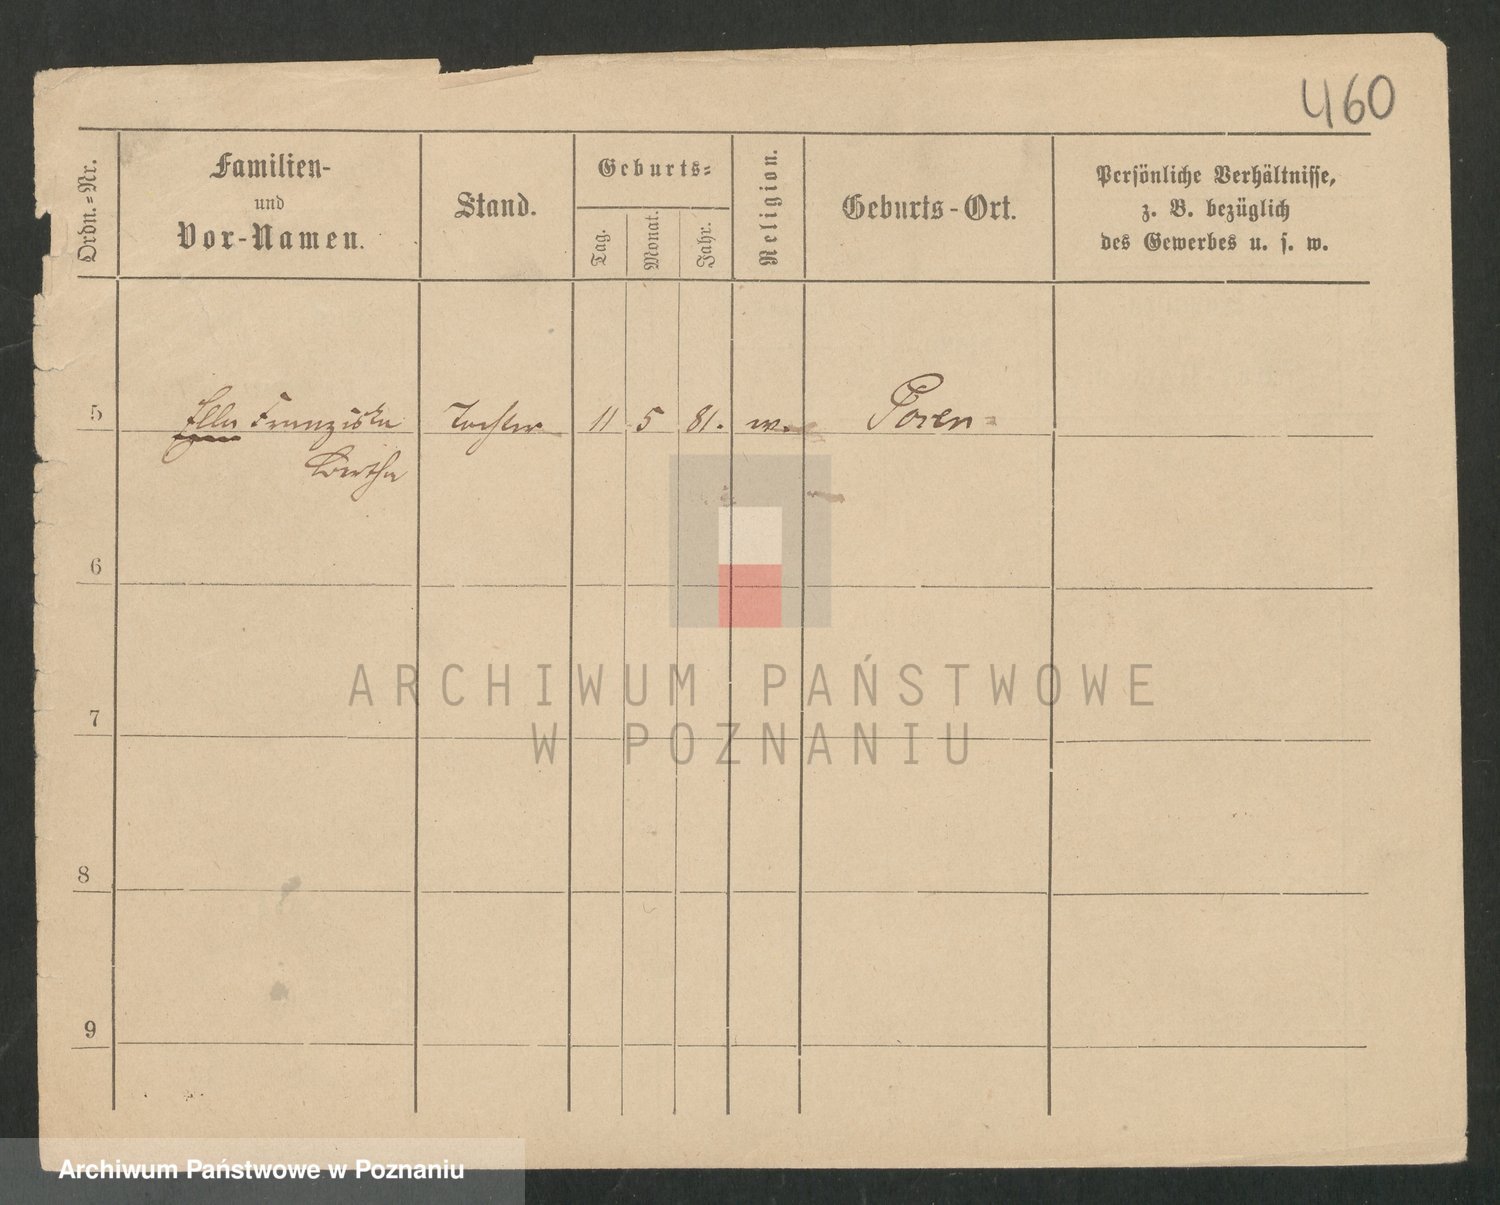 460
Ordn.-Nr.
Familien-
und
Vor-Namen.
Stand.
Geburts-
Tag.
Monat.
Jahr.
Religion.
Geburts-Ort.
Persönliche Verhältnisse,
z. B. bezüglich
des Gewerbes u. s. w.
5 Ella Franziska Tochter 11 5 81. Posen
Bertha
6
7
8
9
ARCHIWUM PAŃSTWOWE
W POZNANIU
Archiwum Państwowe w Poznaniu